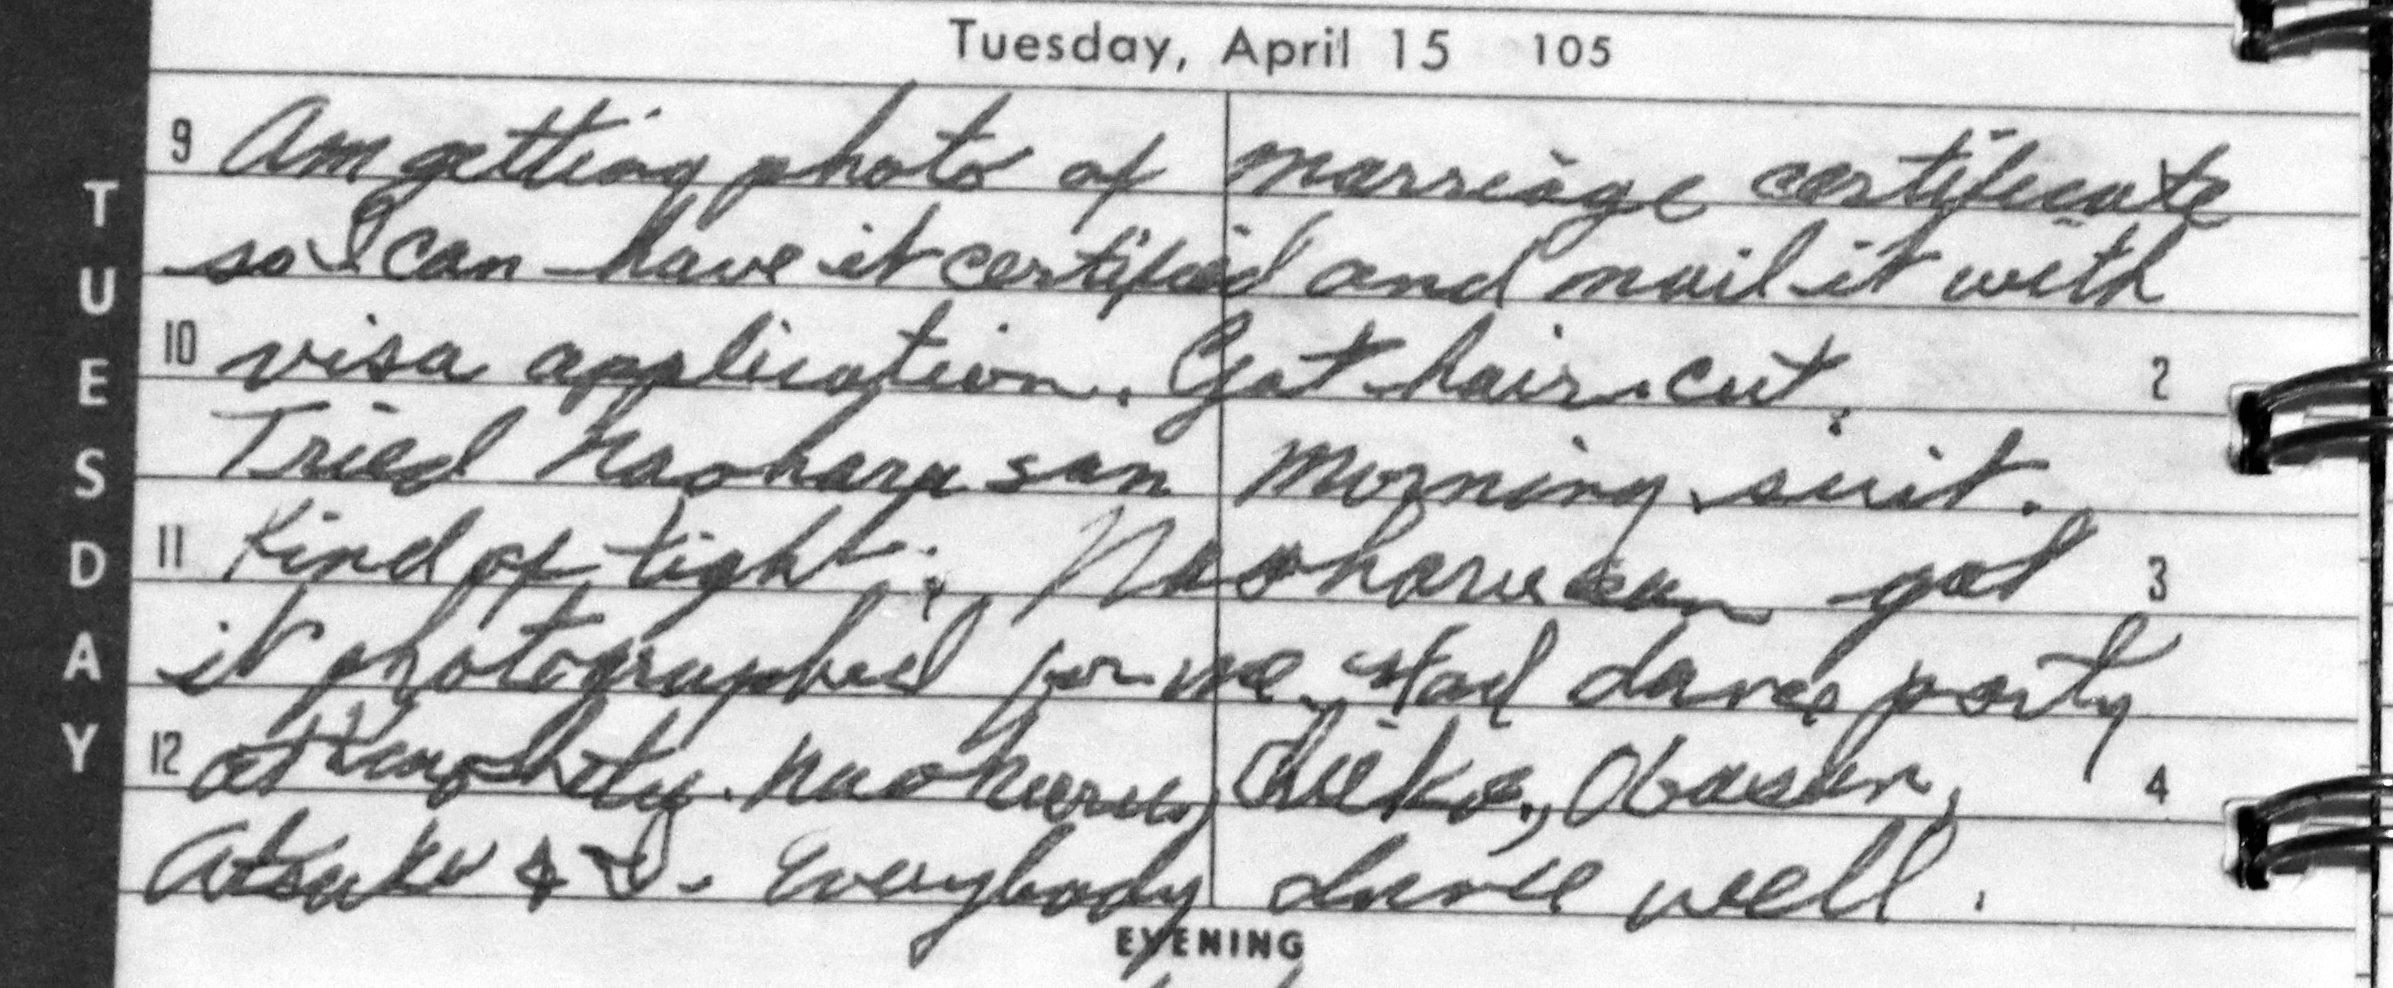 Tuesday, April 15 105
TUESDAY
9 Am getting photo of marriage certificate
so I can have it certified and mail it with
10 visa application. Got hair cut. 2
Tried Naoharu san morning suit.
11 Kind of tight. Naoharu san got 3
it photographed for me. Had dance party
12 at Naoharu, Chieko, Obasan, 4
Atsuko & I. Everybody dance well.
EVENING